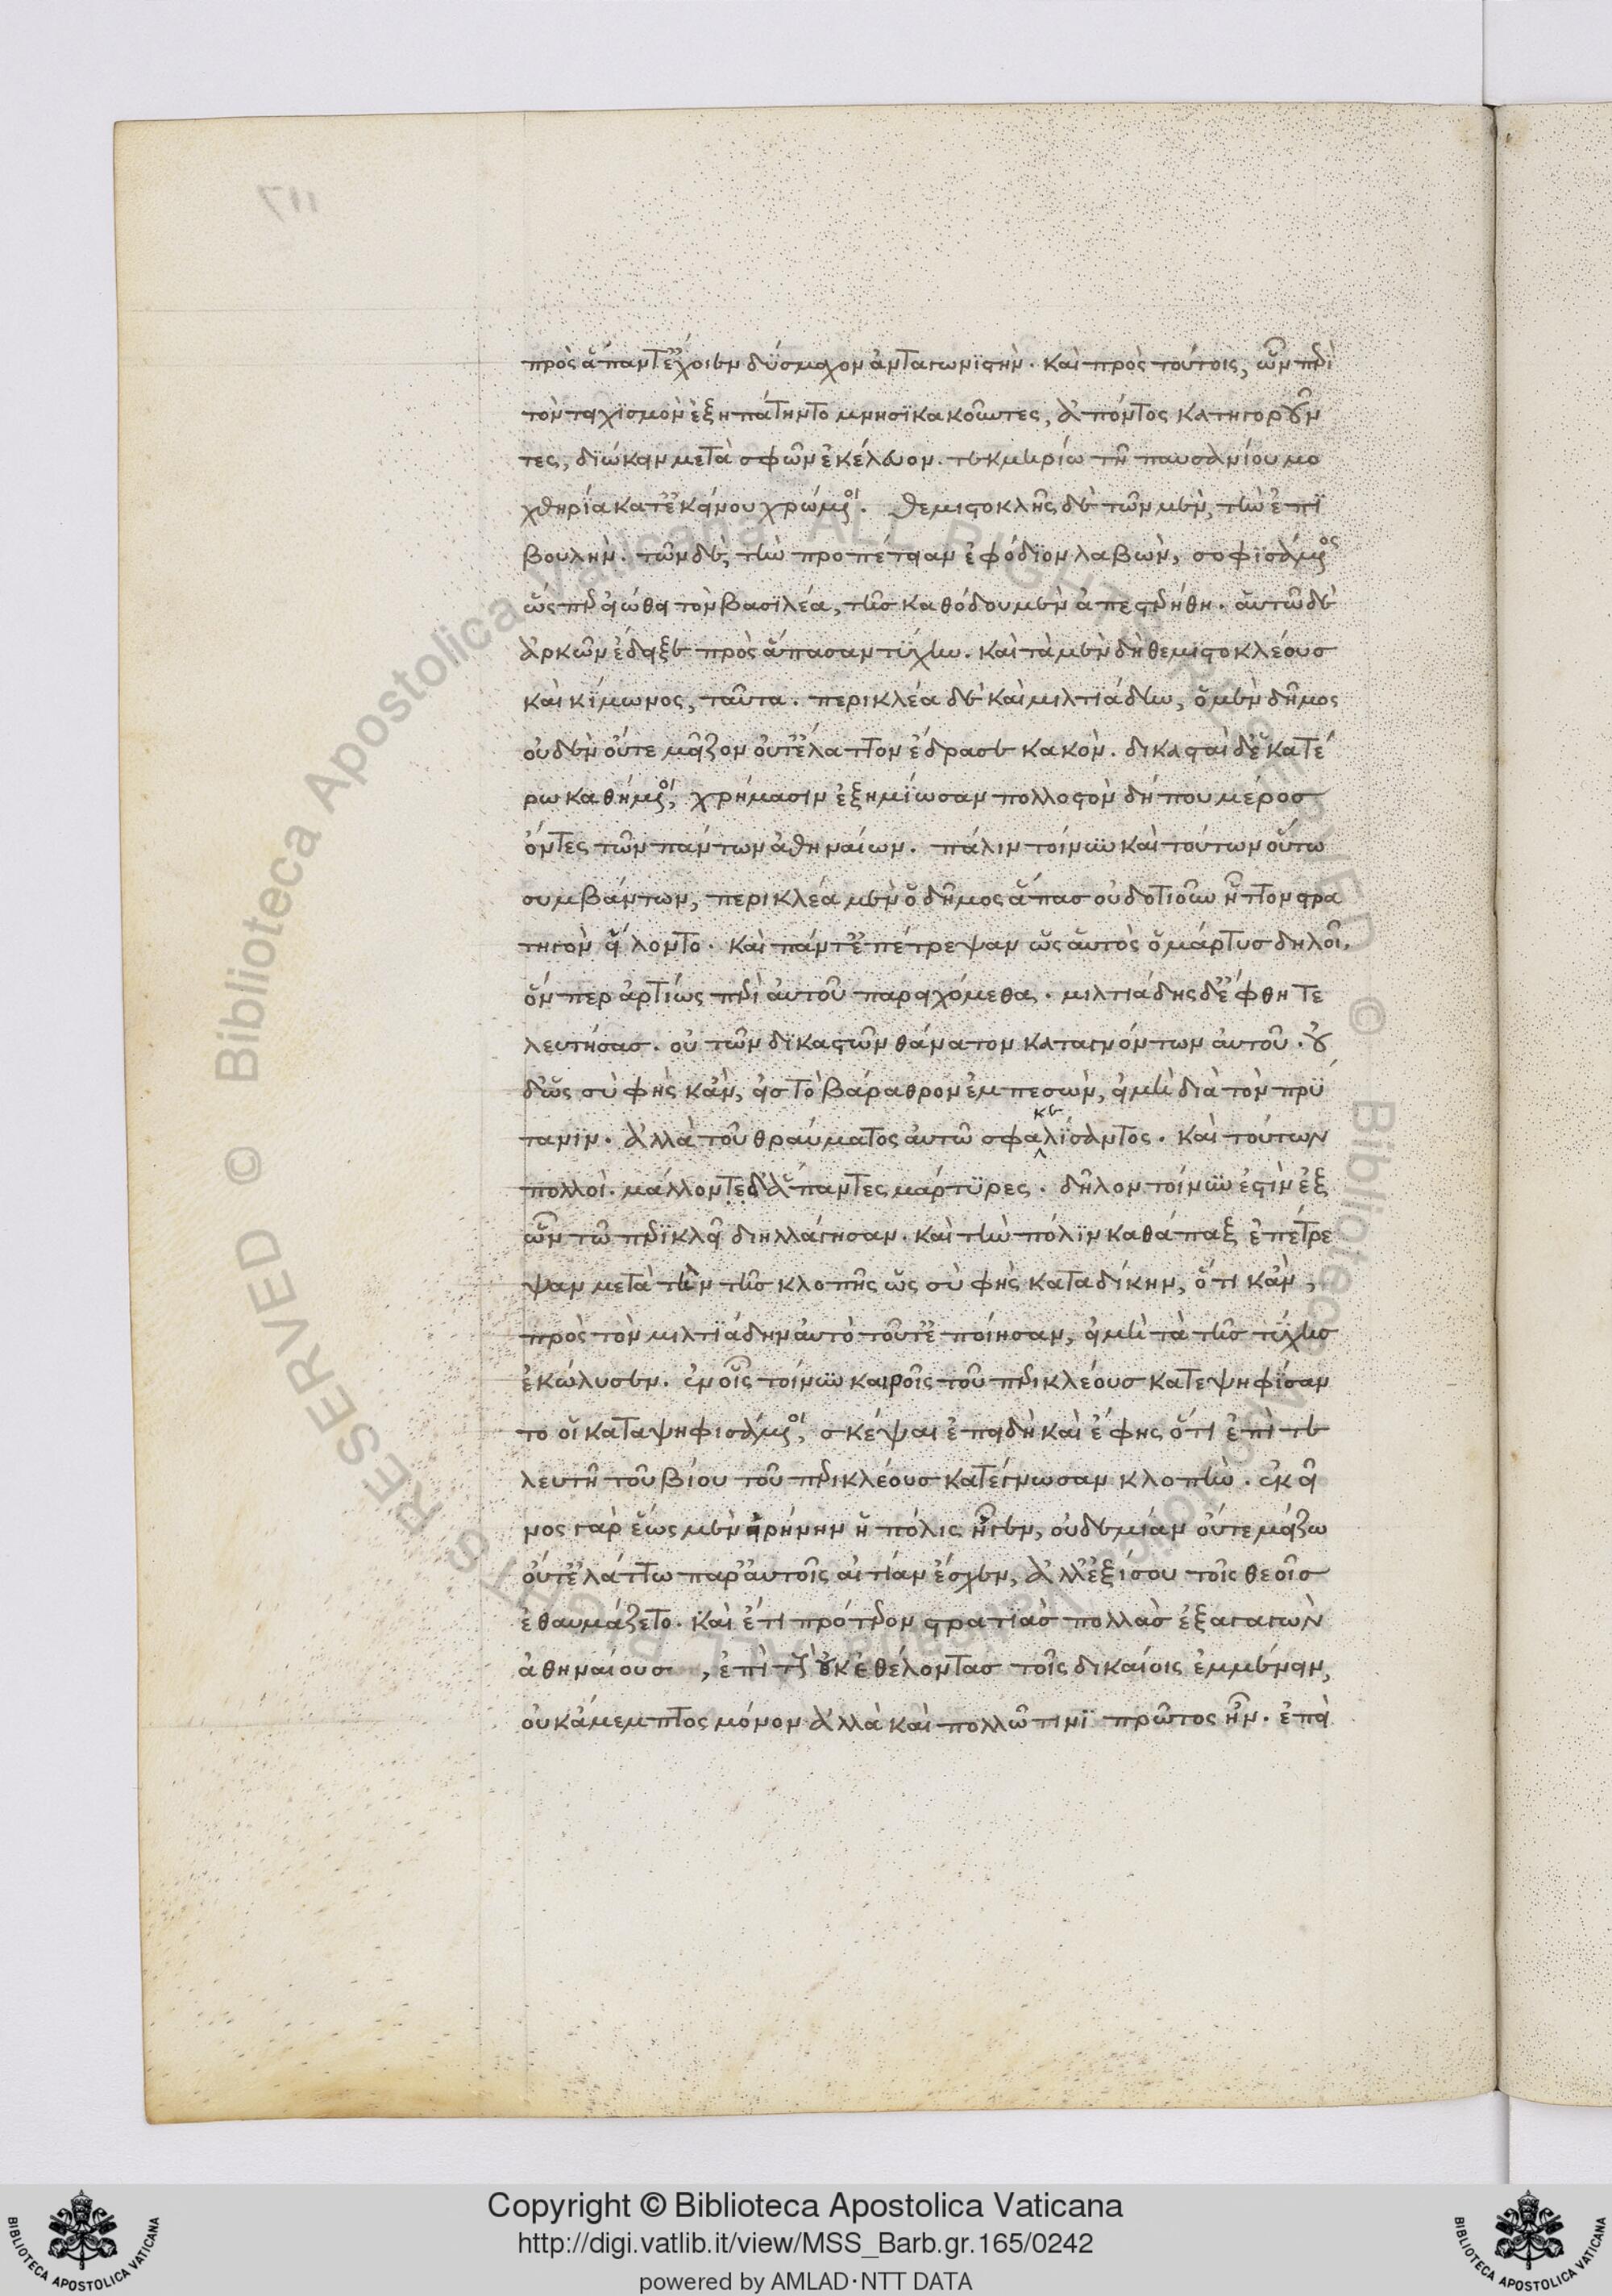 πρὸς ἅπαντ' ἔχοιεν δύσμαχον ἀνταγωνιστήν. καὶ πρὸς τούτοις, ὧν περὶ
τὸν τειχισμὸν ἐξηπάτηντο μνησικακοῦντες, ἀπόντος κατηγοροῦν
τες, διώκειν μετὰ σφῶν ἐκέλευον. τεκμηρίω τῆ παυσανίου μο
χθηρία κατ' ἐκείνου χρώμενοι. Θεμιστοκλῆς δὲ τῶν μὲν, τὴν ἐπι
βουλήν. τῶν δὲ, τὴν προπέτειαν ἐφόδιον λαβὼν, σοφισάμενος
ὡς περιεώθει τὸν βασιλέα, τῆς καθόδου μὲν ἀπεστερήθη. αὑτῶ δὲ
ἀρκῶν ἔδειξε πρὸς ἅπασαν τύχην. καὶ τὰ μὲν δὴ θεμιστοκλέους
καὶ κίμωνος, ταῦτα. περικλέα δὲ καὶ μιλτιάδην, ὁ μὲν δῆμος
οὐδὲν οὔτε μεῖζον οὔτ' ἔλαττον ἔδρασε κακόν. δικασταὶ δ' ἑκατέ
ρω καθήμενοι, χρήμασιν ἐξημίωσαν πολλοστὸν δήπου μέρος
ὄντες τῶν πάντων ἀθηναίων. πάλιν τοίνυν καὶ τούτων οὕτω
συμβάντων, περικλέα μὲν ὁ δῆμος ἅπας οὐδοτιοῦν ἧττον στρα
τηγὸν εἵλοντο. καὶ πάντ' ἐπέτρεψαν ὡς αὑτὸς ὁ μάρτυς δηλοῖ,
ὅνπερ ἀρτίως περὶ αὐτοῦ παρειχόμεθα. μιλτιάδης δ' ἔφθη τε
λευτήσας. οὐ τῶν δικαστῶν θάνατον καταγνόντων αὐτοῦ. οὐ
δ' ὡς σὺ φὴς κἂν, εἰς τὸ βάραθρον ἐμπεσὼν, εἰ μὴ διὰ τὸν πρύ
τανιν. ἀλλὰ τοῦ θραύματος αὐτῶ σφακελίσαντος. καὶ τούτων
πολλοὶ. μᾶλλον τε δ' ἅπαντες μάρτυρες. δῆλον τοίνυν ἐστὶν ἐξ
ὧν τῶ περικλεῖ διηλλάγησαν. καὶ τὴν πόλιν καθάπαξ ἐπέτρε
ψαν μετὰ τὴν τῆς κλοπῆς ὡς σὺ φὴς καταδίκην, ὅτι κἂν,
πρὸς τὸν μιλτιάδην αὐτὸ τοῦτ' ἐποίησαν, εἰ μὴ τὰ τῆς τύχης
ἐκώλυσεν. ἐν οἷς τοίνυν καιροῖς τοῦ περικλέους κατεψηφίσαν
το οἱ καταψηφισάμενοι, σκέψαι ἐπειδὴ καὶ ἔφης ὅτι ἐπὶ τε
λευτῆ τοῦ βίου τοῦ περικλέους κατέγνωσαν κλοπήν. ἐκεῖ
νος γὰρ ἕως μὲν εἰρήνην ἡ πόλις ἦγεν, οὐδεμίαν οὔτε μείζω
οὔτ' ἐλάττω παρ' αὐτοῖς αἰτίαν ἔσχεν, ἀλλ' ἐξίσου τοῖς θεοῖς
ἐθαυμάζετο. καὶ ἔτι πρότερον στρατιὰς πολλὰς ἐξαγαγὼν
ἀθηναίους, ἐπὶ τοὺς οὐκ ἐθέλοντας τοῖς δικαίοις ἐμμένειν,
οὐκ ἄμεμπτος μόνον ἀλλὰ καὶ πολλῶ τινὶ πρῶτος ἦν. ἐπεὶ
Copyright © Biblioteca Apostolica Vaticana
http://digi.vatlib.it/view/MSS_Barb.gr.165/0242
powered by AMLAD·NTT DATA